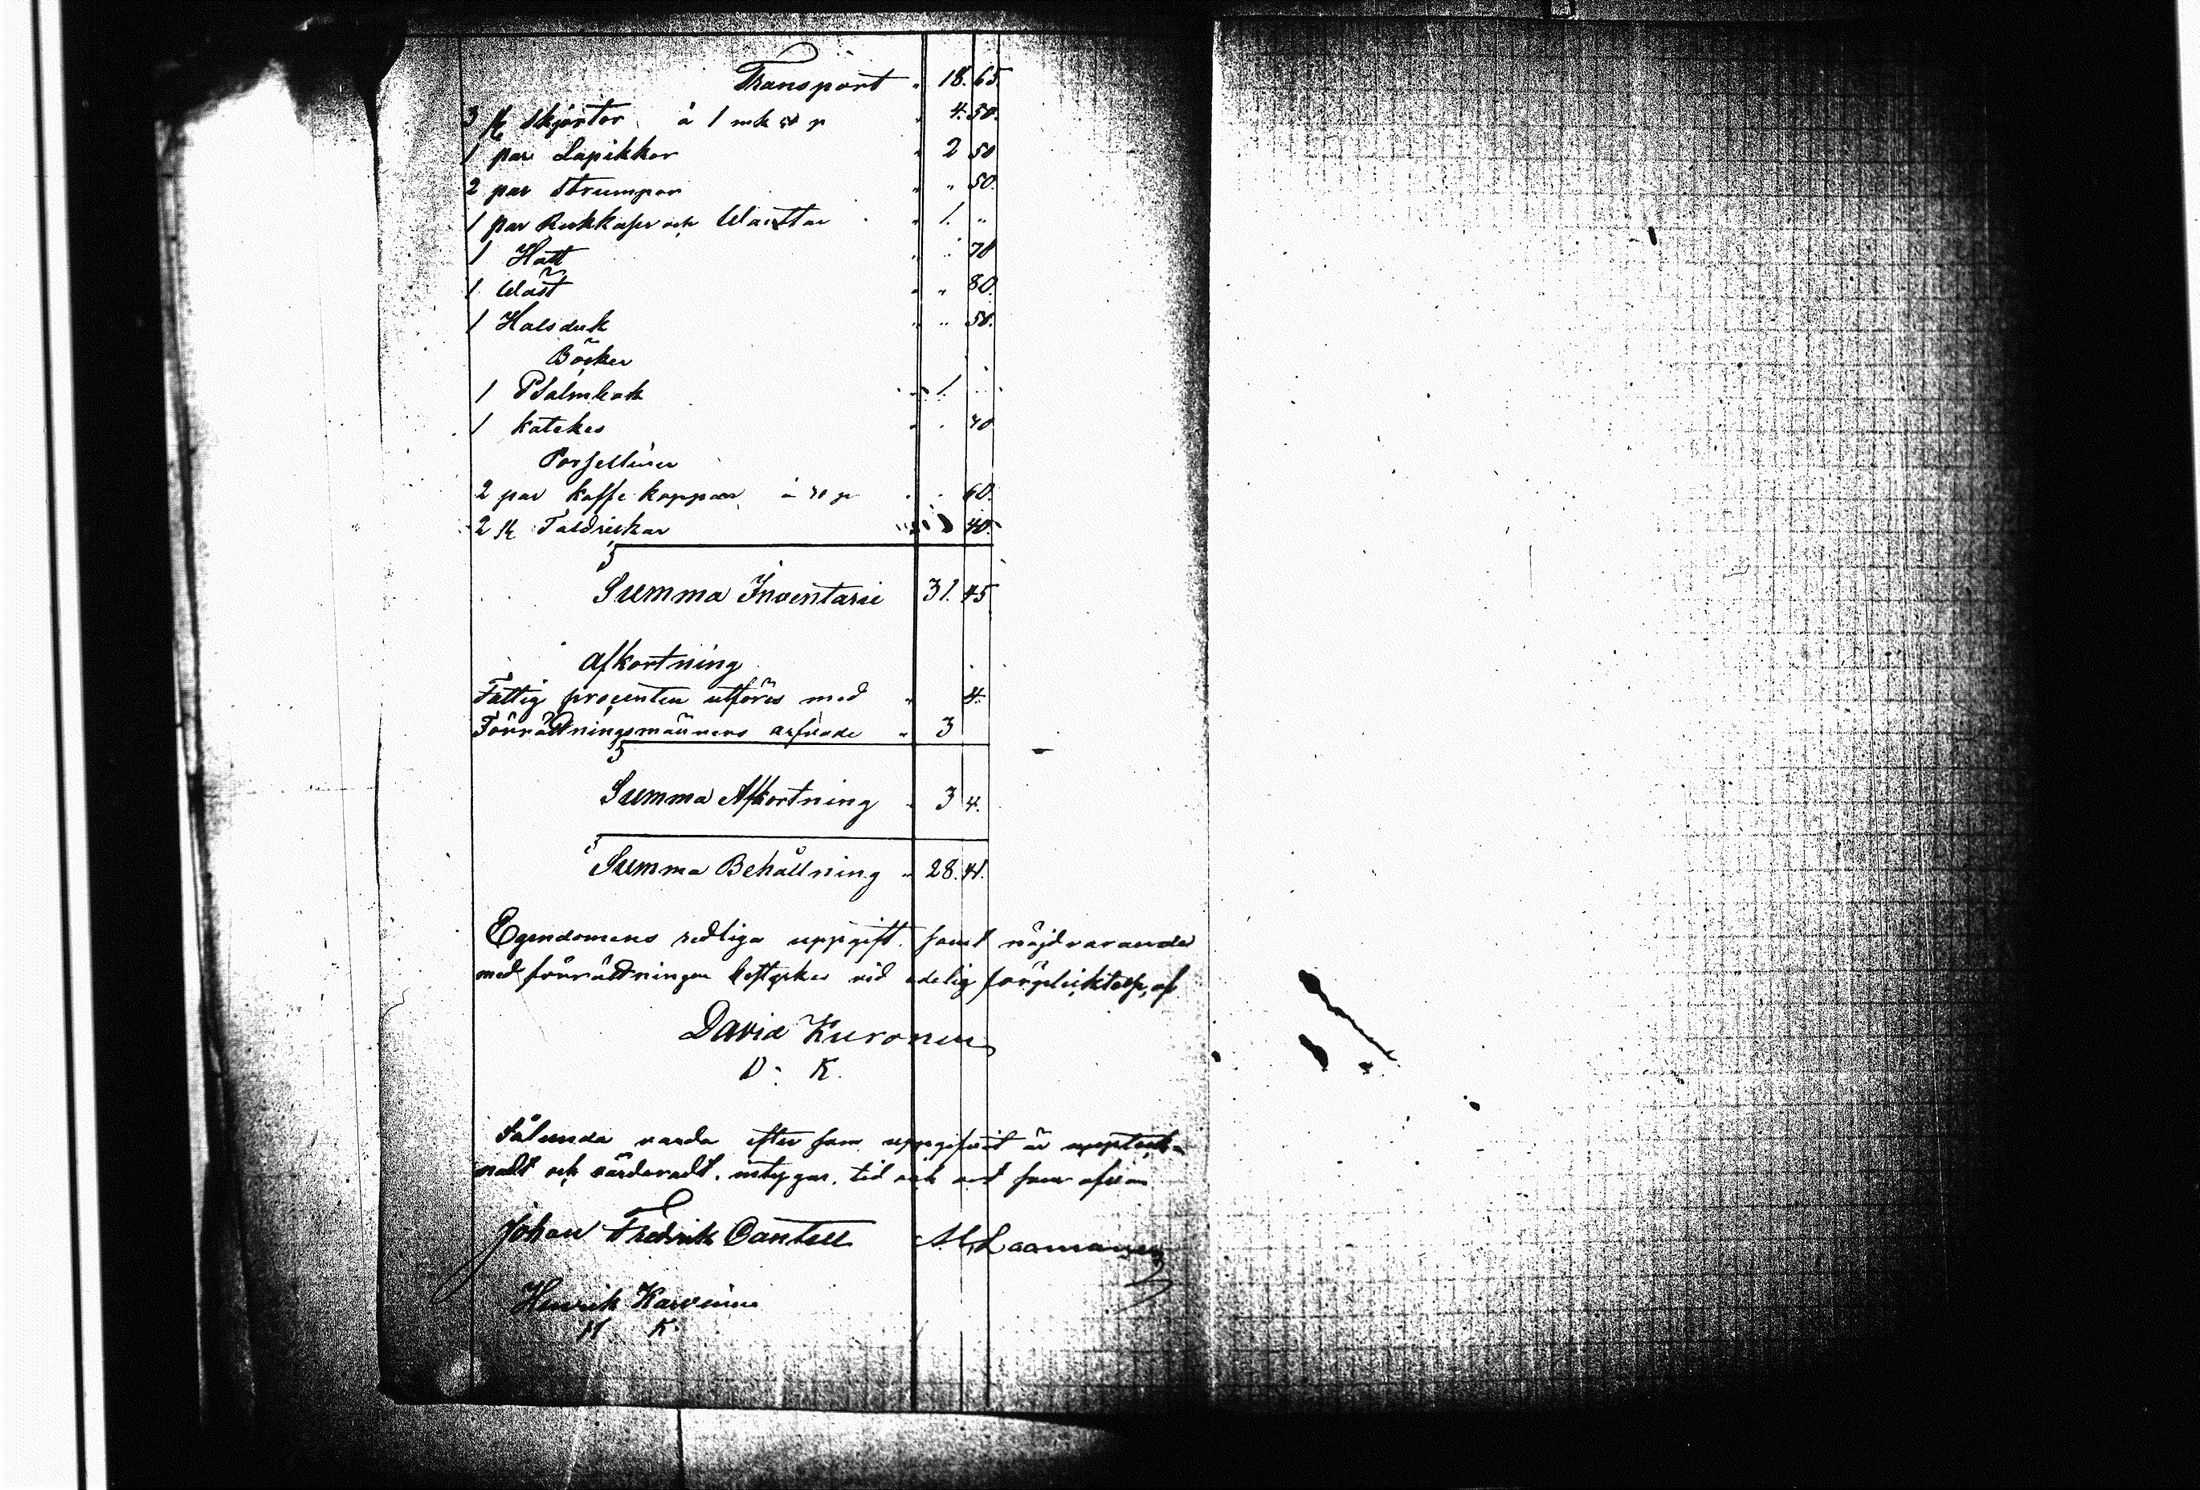 Transport " 18. 65.
3 st Skjortor à 1 mk 50 p " 4. 50.
1 par Lapikkor " 2 50
2 par Strumpor " " 50.
1 par och Wanttar " 1. "
1 Hatt " " 70
1 Wäst " " 80.
1 Halsduk " " 50.
Böcker
1 Psalmbok " 1.
1 Katekes " "
Porselliner
2 par kaffe koppar à 30 p " " 60.
2 st Taldrickar " 40.
Summa Inventarie 31. 45
Afkortning
Fattig procenten utföres med " 4.
Förrättningsmännens arfvode " 3
Summa Afkortning " 3 4.
Summa Behållning " 28. 41.
Egendomens redliga uppgift, samt nöjdvarande
med förrättningen bestyrkes vid edelig förpliktelse, af
David Kuronen
D. K.
Sålunda vara efter som uppgifvit är uppteck-
nadt och värderadt, intygar, tid och ort som ofvan
Johan Fredrik Cantell
Laamanen
Henrik Karvinen
H K.